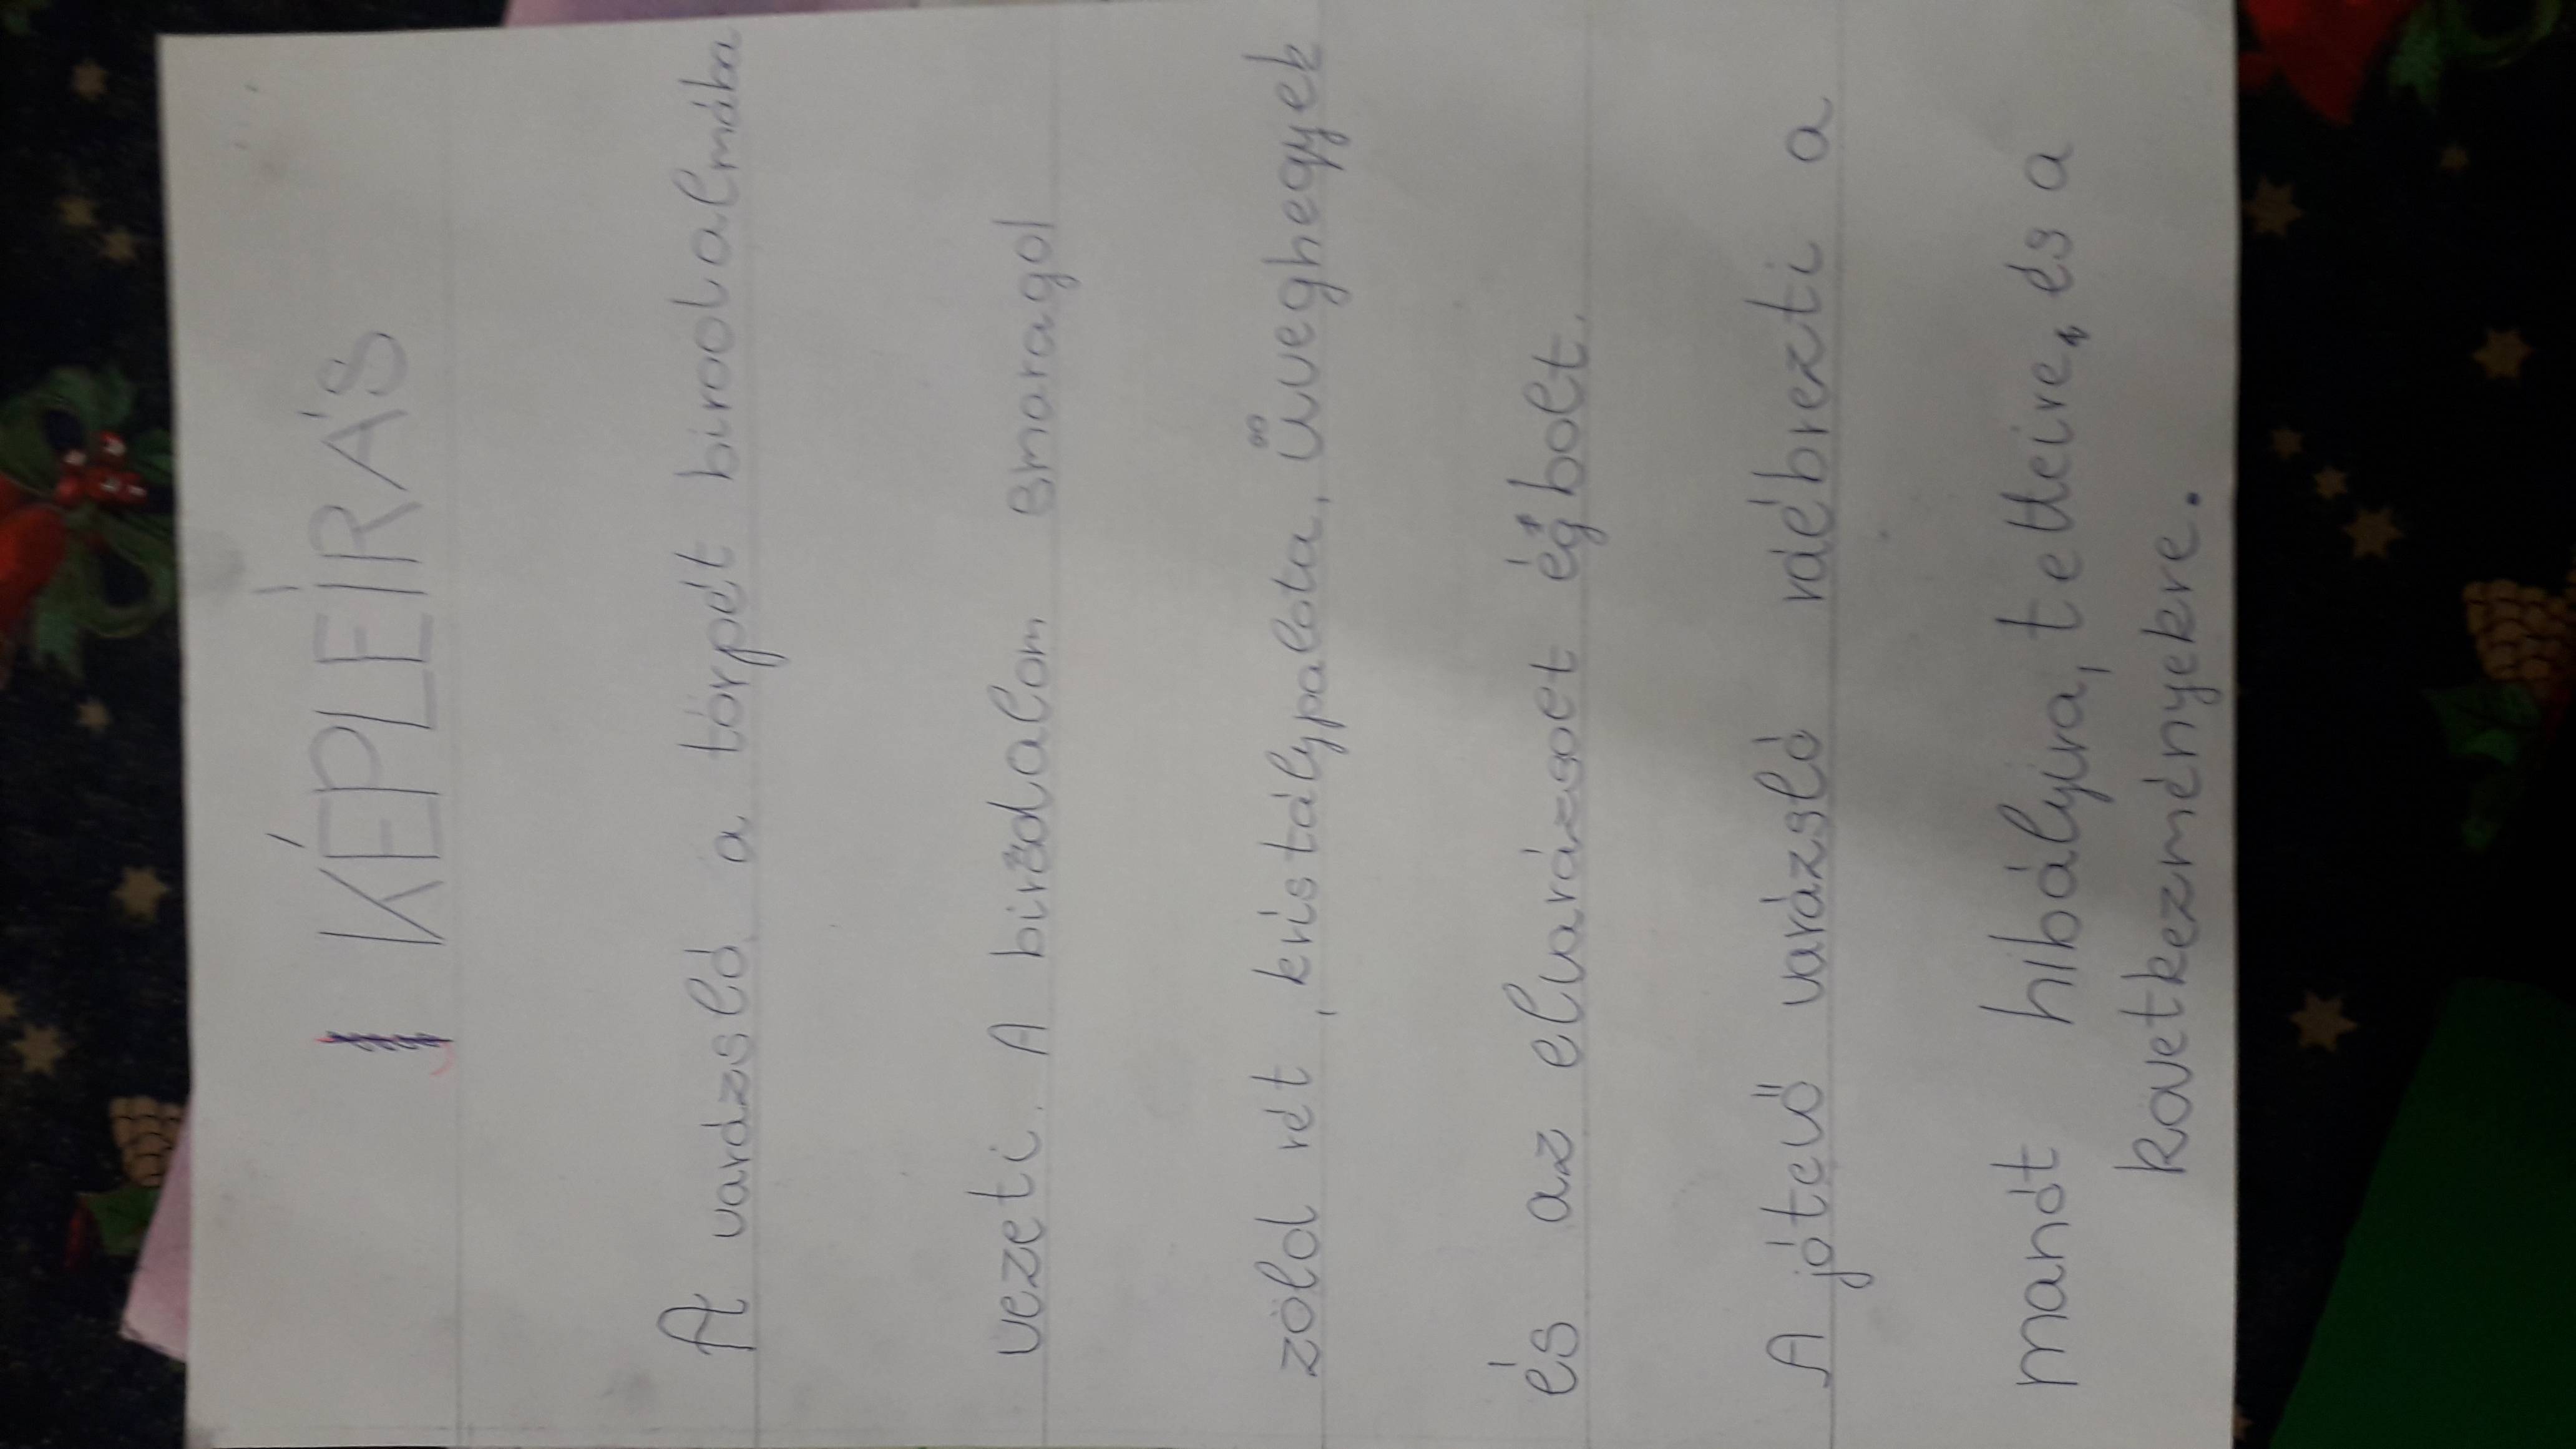 KÉPLEÍRÁS
A varázsló a törpét birodalmába
vezeti. A birodalom smaragd
zöld rét, kristálypalota, üveghegyek
és az elvarázsoet égbolt.
A jótevő varázsló ráébrezti a
manót hibályira, tetteire, és a
következményekre.